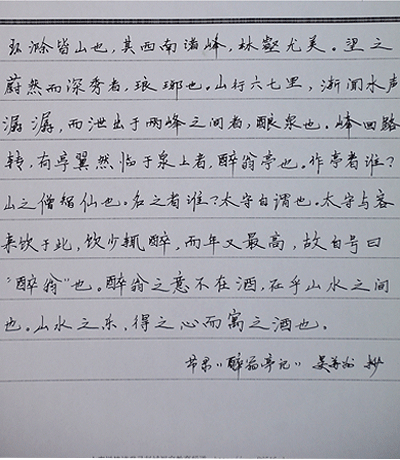 环滁皆山也，其西南诸峰，林壑尤美。望之
蔚然而深秀者，琅琊也。山行六七里，渐闻水声
潺潺，而泄出于两峰之间者，酿泉也。峰回路
转，有亭翼然临于泉上者，醉翁亭也。作亭者谁？
山之僧智仙也。名之者谁？太守自谓也。太守与客
来饮于此，饮少辄醉，而年又最高，故自号曰
“醉翁”也。醉翁之意不在酒，在乎山水之间
也。山水之乐，得之心而寓之酒也。
节录“醉翁亭记”